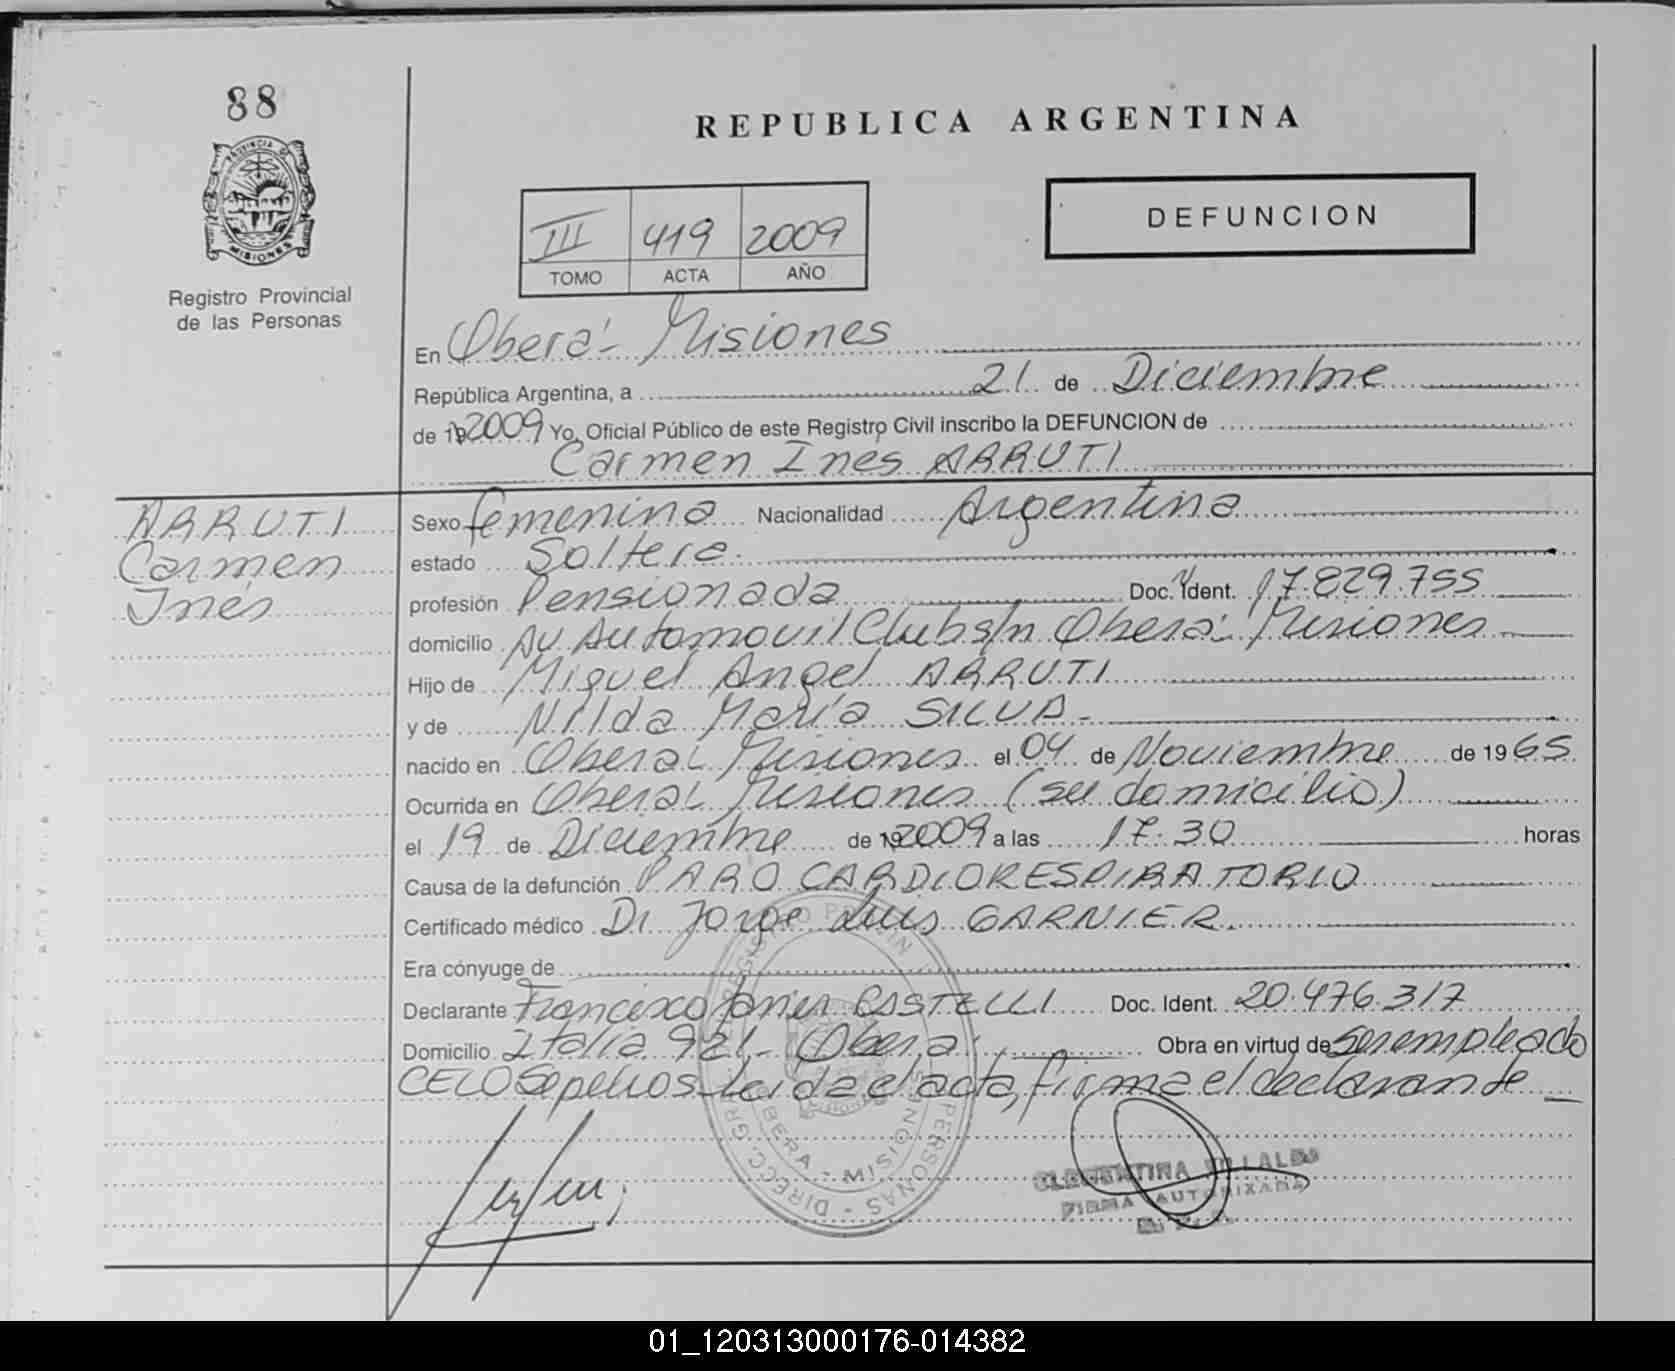 88
PROVINCIA DE
MISIONES
Registro Provincial
de las Personas
REPUBLICA ARGENTINA
III 419 2009
TOMO ACTA AÑO
DEFUNCION
En Oberá - Misiones
República Argentina, a 21 de Diciembre
de 19 2009 Yo, Oficial Público de este Registro Civil inscribo la DEFUNCION de
Carmen Ines ARRUTI
ARRUTI
Carmen
Inés
Sexo femenino Nacionalidad Argentina
estado Soltera
profesión Pensionada Doc. Ident. 17.829.755
domicilio Av Automovil Club s/n Oberá Misiones
Hijo de Miguel Angel ARRUTI
y de Nilda María SILVA-
nacido en Oberá Misiones el 04 de Noviembre de 1965
Ocurrida en Oberá Misiones (su domicilio)
el 19 de Diciembre de 19 2009 a las 17.30 horas
Causa de la defunción PARO CARDIORESPIRATORIO
Certificado médico Dr Jorge Luis GARNIER.
Era cónyuge de
Declarante Francisco Javier CASTELLI Doc. Ident. 20.476.317
Domicilio Italia 921 - Oberá Obra en virtud de ser empleado
CELO Sepelios Leida el acta, firma el declarante
OBERA - MISIONES
PERSONAS - DIRECC. GR.
FIRMA AUTORIZADA
01_120313000176-014382